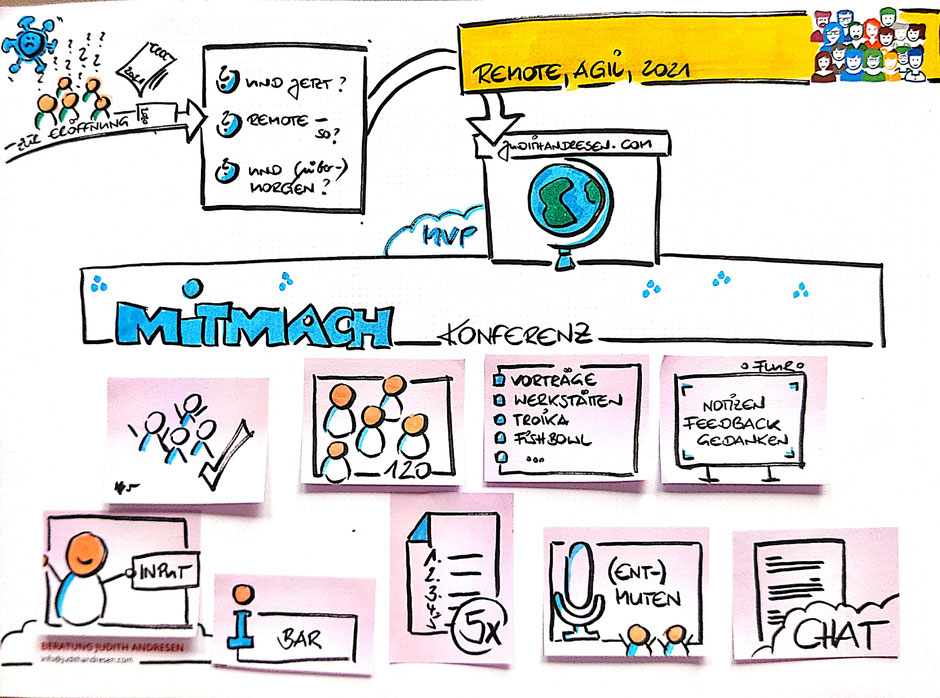 - ZUR ERÖFFNUNG
2021
? UND JETZT?
? REMOTE -
SO?
? UND (ÜBER-)
MORGEN?
REMOTE, AGIL, 2021
JUDITHANDRESEN.COM
MVP
MITMACH KONFERENZ
120
VORTRÄGE
WERKSTÄTTEN
TROIKA
FISHBOWL
...
FLUR
NOTIZEN
FEEDBACK
GEDANKEN
INPUT
BERATUNG JUDITH ANDRESEN
info@judithandresen.com
i
BAR
1.
2.
3.
4.
5x
(ENT-)
MUTEN
CHAT